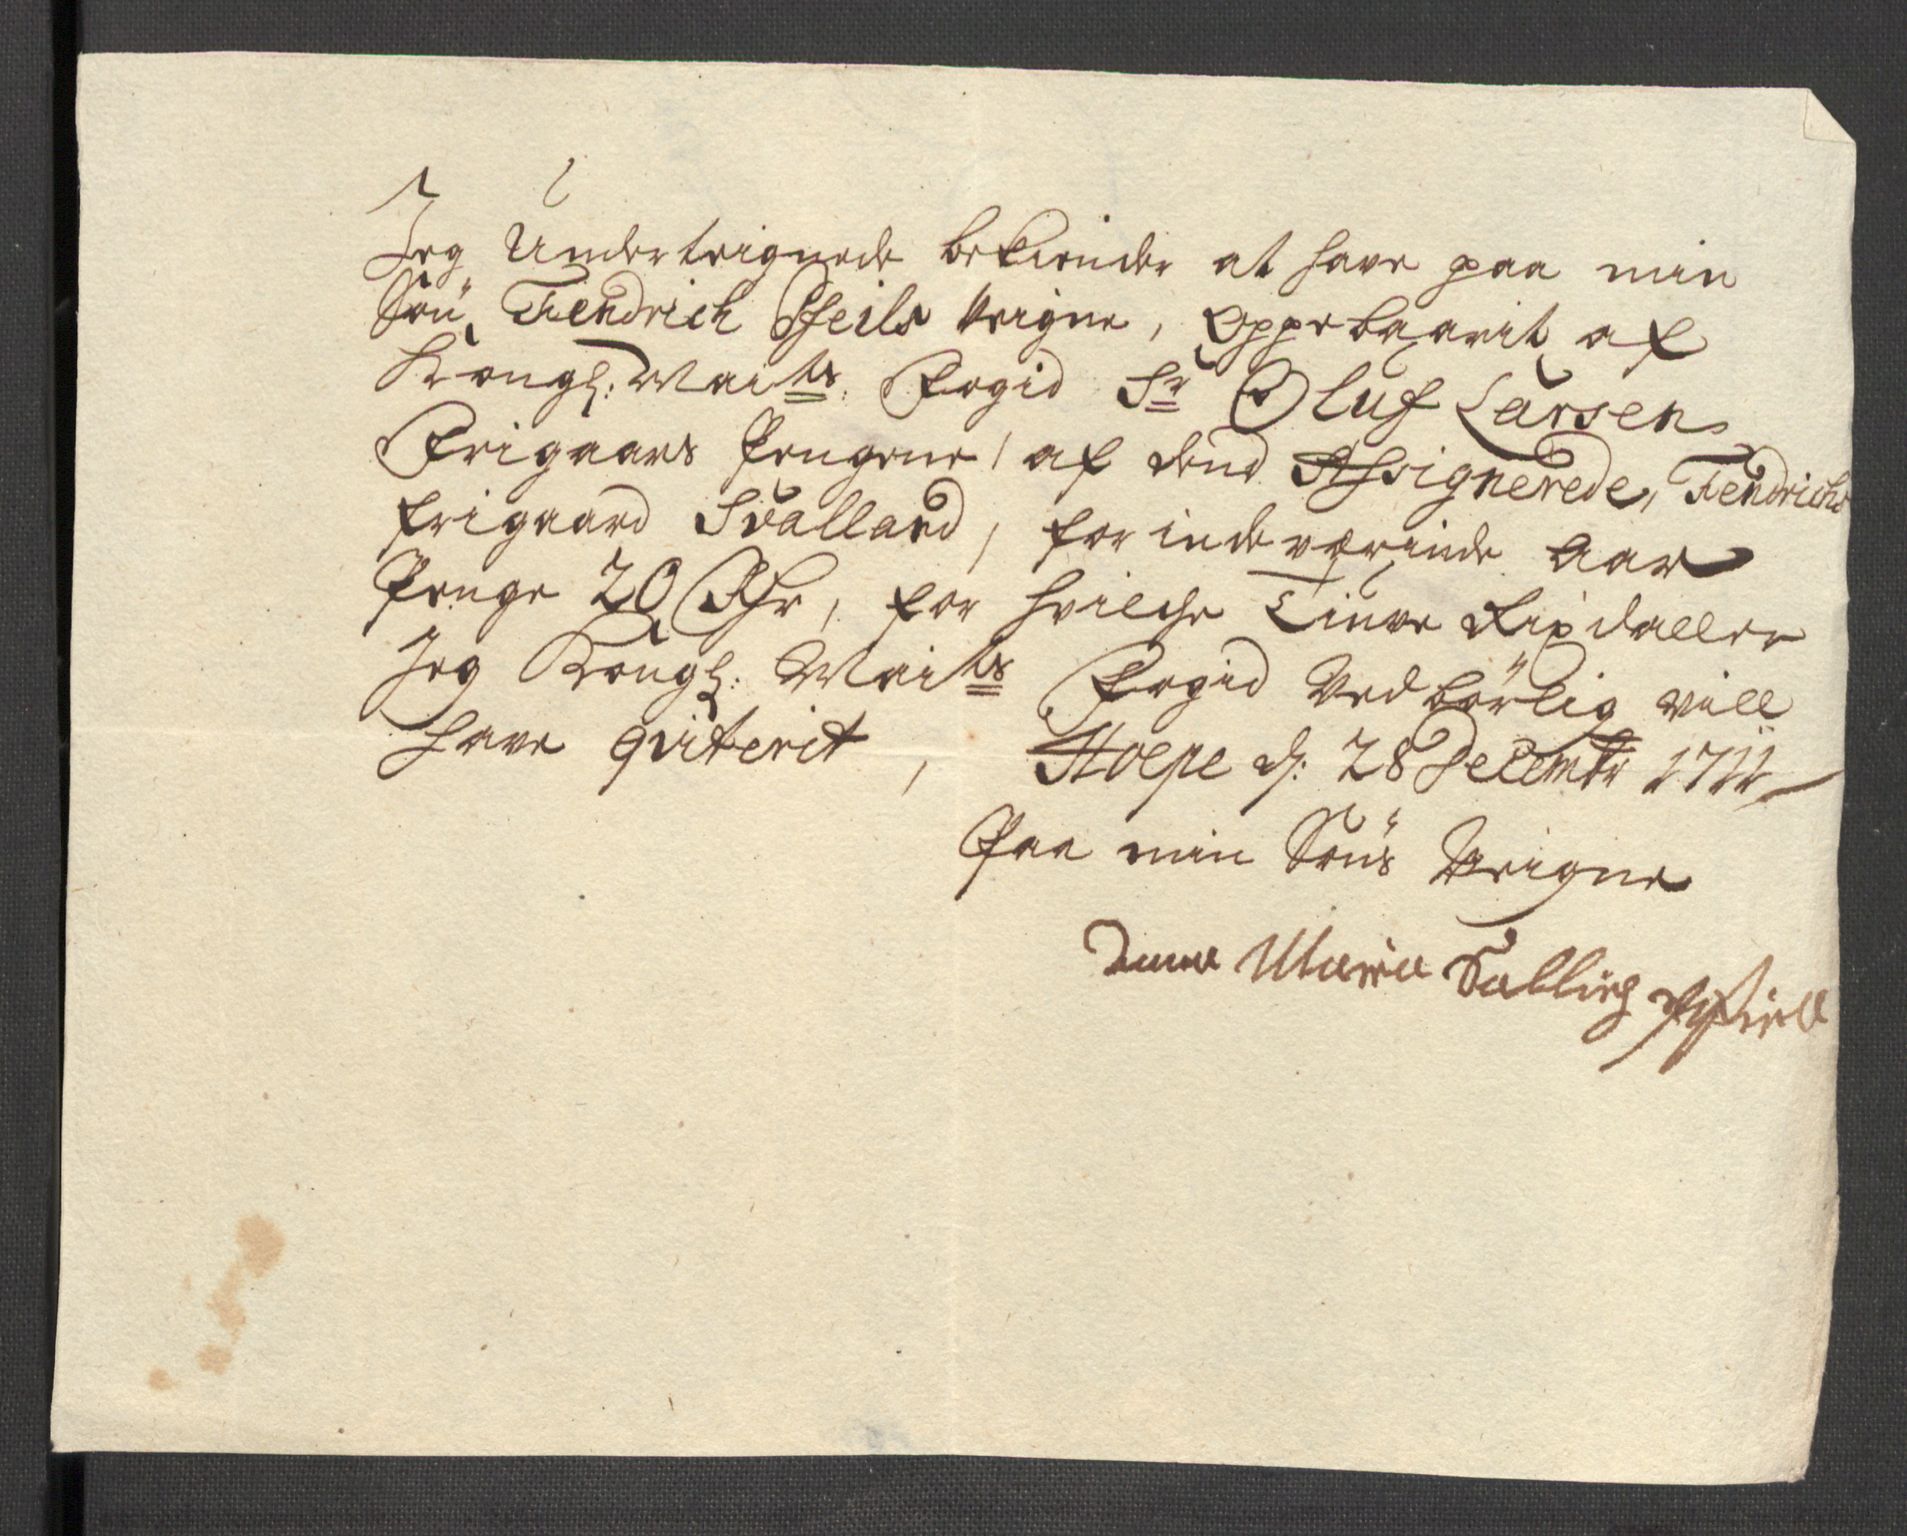 Jeg Underteignede bekiender at have paa min
Søn, Fendrich Pfeils Veigne, Oppebaarit af
Kongl: Maits. Fogid Sr Oluf Larsen
Frigaars Pengene, af dend Assignerede, Fendrichs
frigaard Svalland, for indeværinde Aar
Penge 20 Rdr, for hvilche Tiuve Rixdaller
Jeg Kongl: Maits Fogid Vedbörlig vill
have qviterit, Stoepe d: 28 Decembr 1711
Paa min Søns Veigne
Anna Maria Salling Pfeil